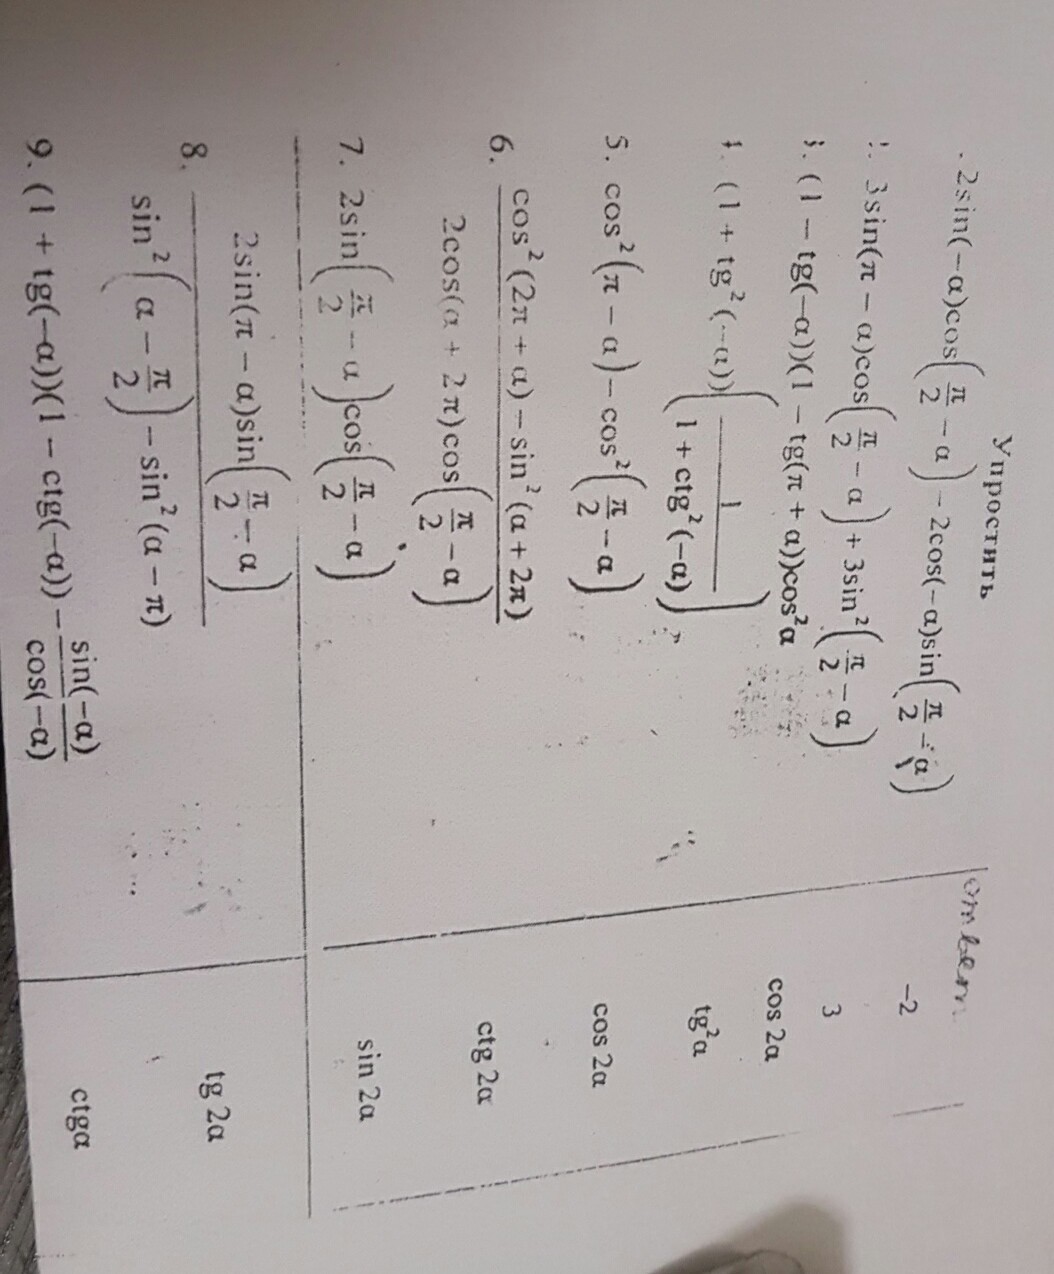 Упростить
ответ
. 2sin(−α)cos(π/2 − α) − 2cos(−α)sin(π/2 − α)
−2
2. 3sin(π − α)cos(π/2 − α) + 3sin²(π/2 − α)
3
3. (1 − tg(−α))(1 − tg(π + α))cos²α
cos 2α
4. (1 + tg²(−α))(1/(1 + ctg²(−α)))
tg²α
5. cos²(π − α) − cos²(π/2 − α)
cos 2α
6. (cos²(2π + α) − sin²(α + 2π))/(2cos(α + 2π)cos(π/2 − α))
ctg 2α
7. 2sin(π/2 − α)cos(π/2 − α)
sin 2α
8. (2sin(π − α)sin(π/2 − α))/(sin²(α − π/2) − sin²(α − π))
tg 2α
9. (1 + tg(−α))(1 − ctg(−α)) − sin(−α)/cos(−α)
ctgα